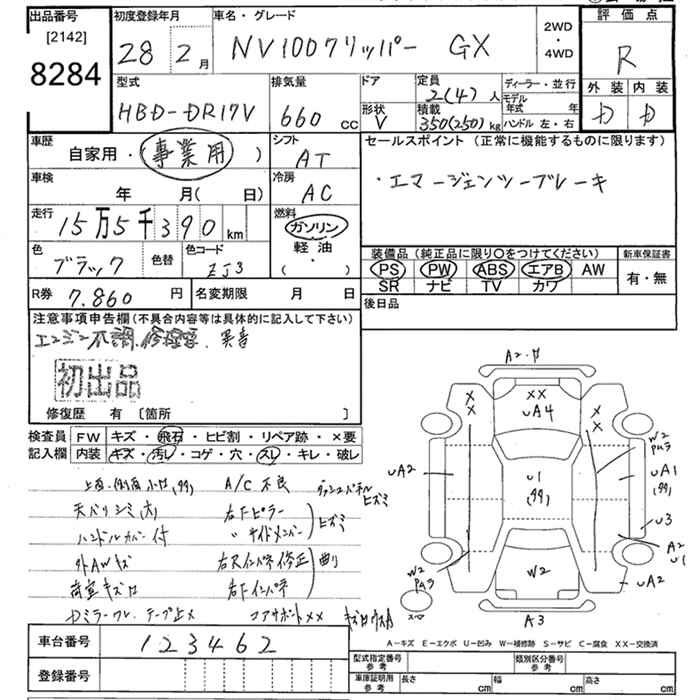 出品番号
[2142]
8284
初度登録年月
28 2月
車名・グレード
NV100クリッパー GX
2WD
・
4WD
評価点
R
外装 内装
D D
型式
HBD-DR17V
排気量
660 cc
ドア
形状
V
定員
2(4)人
積載
350(250)kg
ディーラー・並行
モデル年式 年
ハンドル 左・右
車歴
自家用・(事業用 )
シフト
AT
車検
年 月( 日)
冷房
AC
走行
15万5千390 km
燃料
ガソリン
軽油
( ・ )
色
ブラック
色替
色コード
ZJ3
R券
7.860 円
名変期限 月 日
セールスポイント(正常に機能するものに限ります)
・エマージェンシーブレーキ
装備品(純正品に限り〇をつけてください)
PS PW ABS エアB AW
SR ナビ TV カワ
新車保証書
有・無
後日品
注意事項申告欄(不具合内容等は具体的に記入して下さい)
エンジン不調.修理要.異音
初出品
修復歴 有 〔箇所 〕
検査員記入欄
FW キズ・飛石・ヒビ割・リペア跡・×要
内装 キズ・汚レ・コゲ・穴・スレ・キレ・破レ
上面.側面小凹(99) A/C不良 ダッシュパネルヒズミ
天バリシミ(大) 右Fピラー
ハンドルカバー付 〃サイドメンバー ヒズミ
外AWキズ 右Rインパネ修正 曲り
荷室キズ凹 右Fインパネ
Dミラーワレ.テープ止メ コアサポートXX キズ凹ウスA
A2.サ
XX
UA4
X
X
X
X
W2
PAラ
UA2
U1
(99)
UA1
(99)
U3
A2
U1
W2
PAラ
W2
UA2
スペア
A3
A−キズ E−エクボ U−凹み W−補修跡 S−サビ C−腐食 XX−交換済
車台番号
123462
登録番号
型式指定番号
参考
類別区分番号
参考
車庫証明用
参考
長さ cm 幅 cm 高さ cm